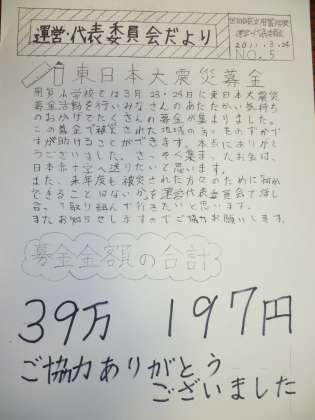 運営・代表委員会だより
世田谷区立用賀小学校
運営・代表委員会
2011.3.25
NO.5
東日本大震災募金
用賀小学校では3月23・24・25日に東日本大震災
募金活動を行いみなさんのあたたかい気持ち
のおかげでたくさんの募金が集まりました。
この募金で被災された地域の方々をわずかで
すが助けることができます。本当にありがと
うございました。さっそく集まったお金は、
日本赤十字へ送りたいと思います。
また、来年度も被災された方々のために何か
できることはないかを運営代表委員会で話し
合って取り組んで行きたいと思います。
またお知らせしますのでご協力お願いします。
募金金額の合計
39万 197円
ご協力ありがとう
ございました